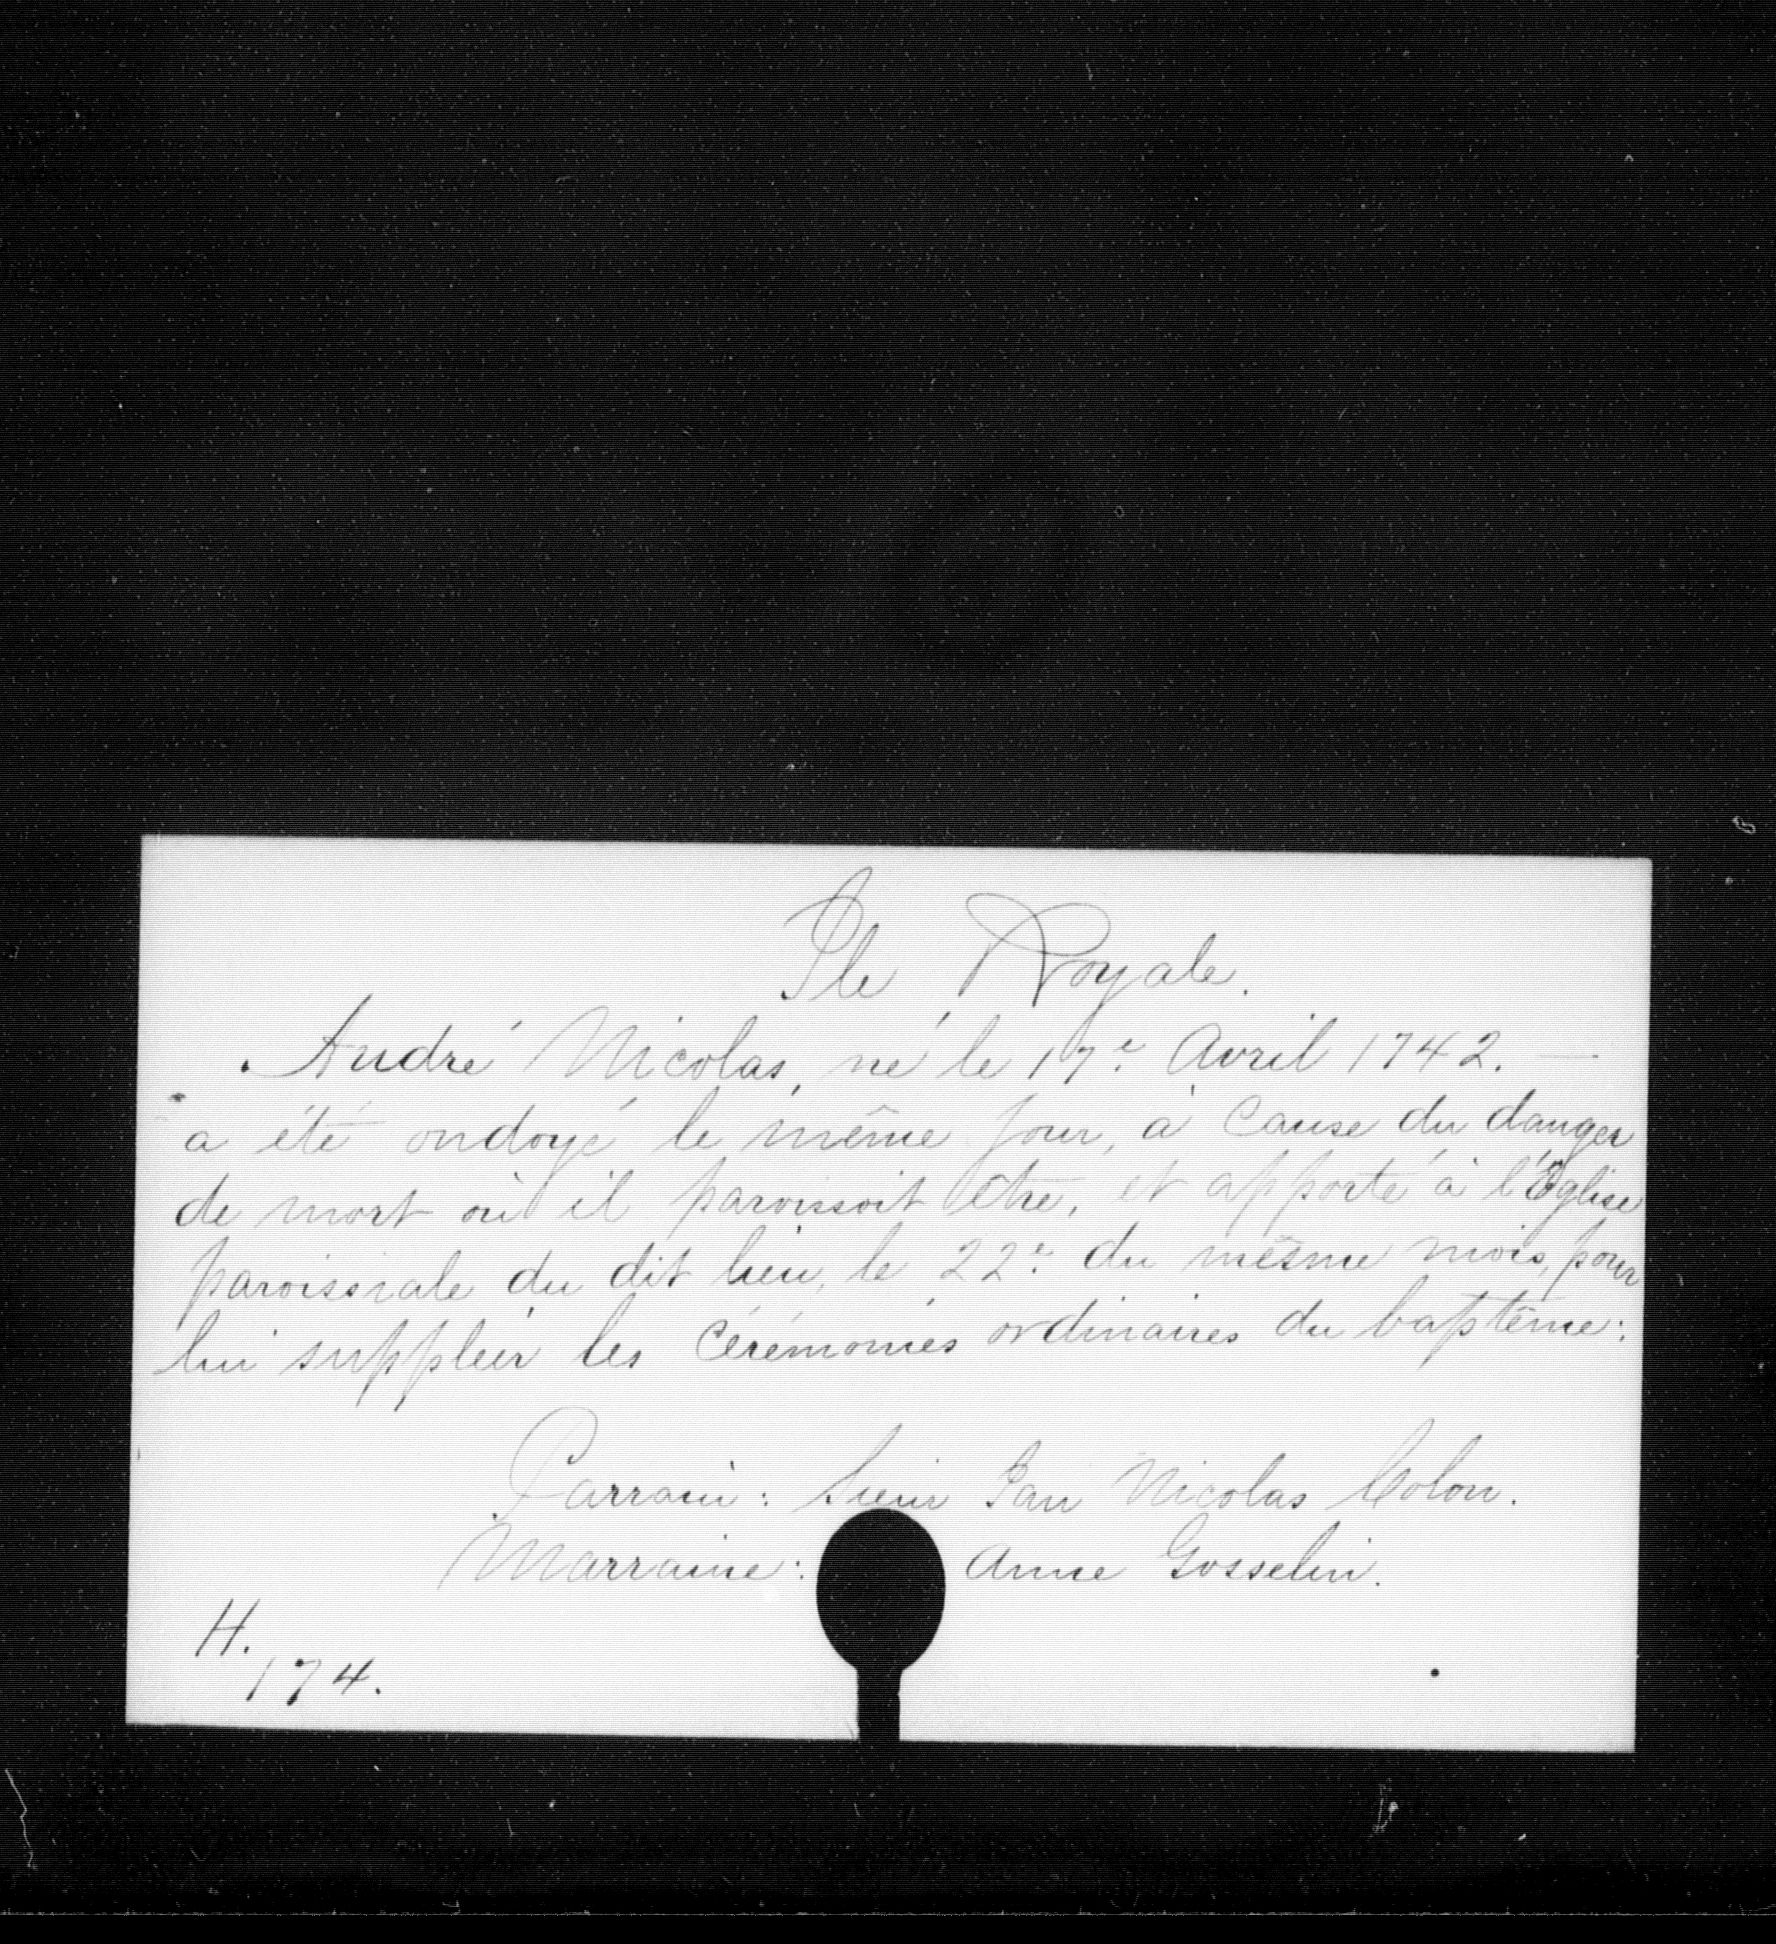 Ile Royale.
André Nicolas, né le 17e Avril 1742. —
a été ondoyé le même jour, à cause du danger
de mort où il paroissoit être, et apporté à l'Église
paroissiale du dit lieu, le 22e du mesme mois, pour
lui suppléer les cérémonies ordinaires du baptême:
Parrain: Sieur Jan Nicolas Colon.
Marraine: Anne Gosselin.
H.
174.